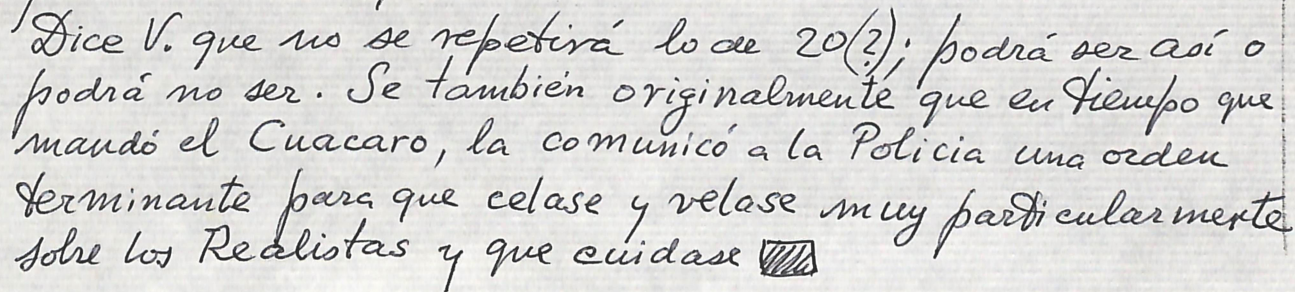 Dice V. que no se repetirá lo de 20(?); podrá ser así o
podrá no ser. Se también originalmente que en tiempo que
mandó el Cuacaro, la comunicó a la Policia una orden
terminante para que celase y velase muy particularmente
sobre los Realistas y que cuidase